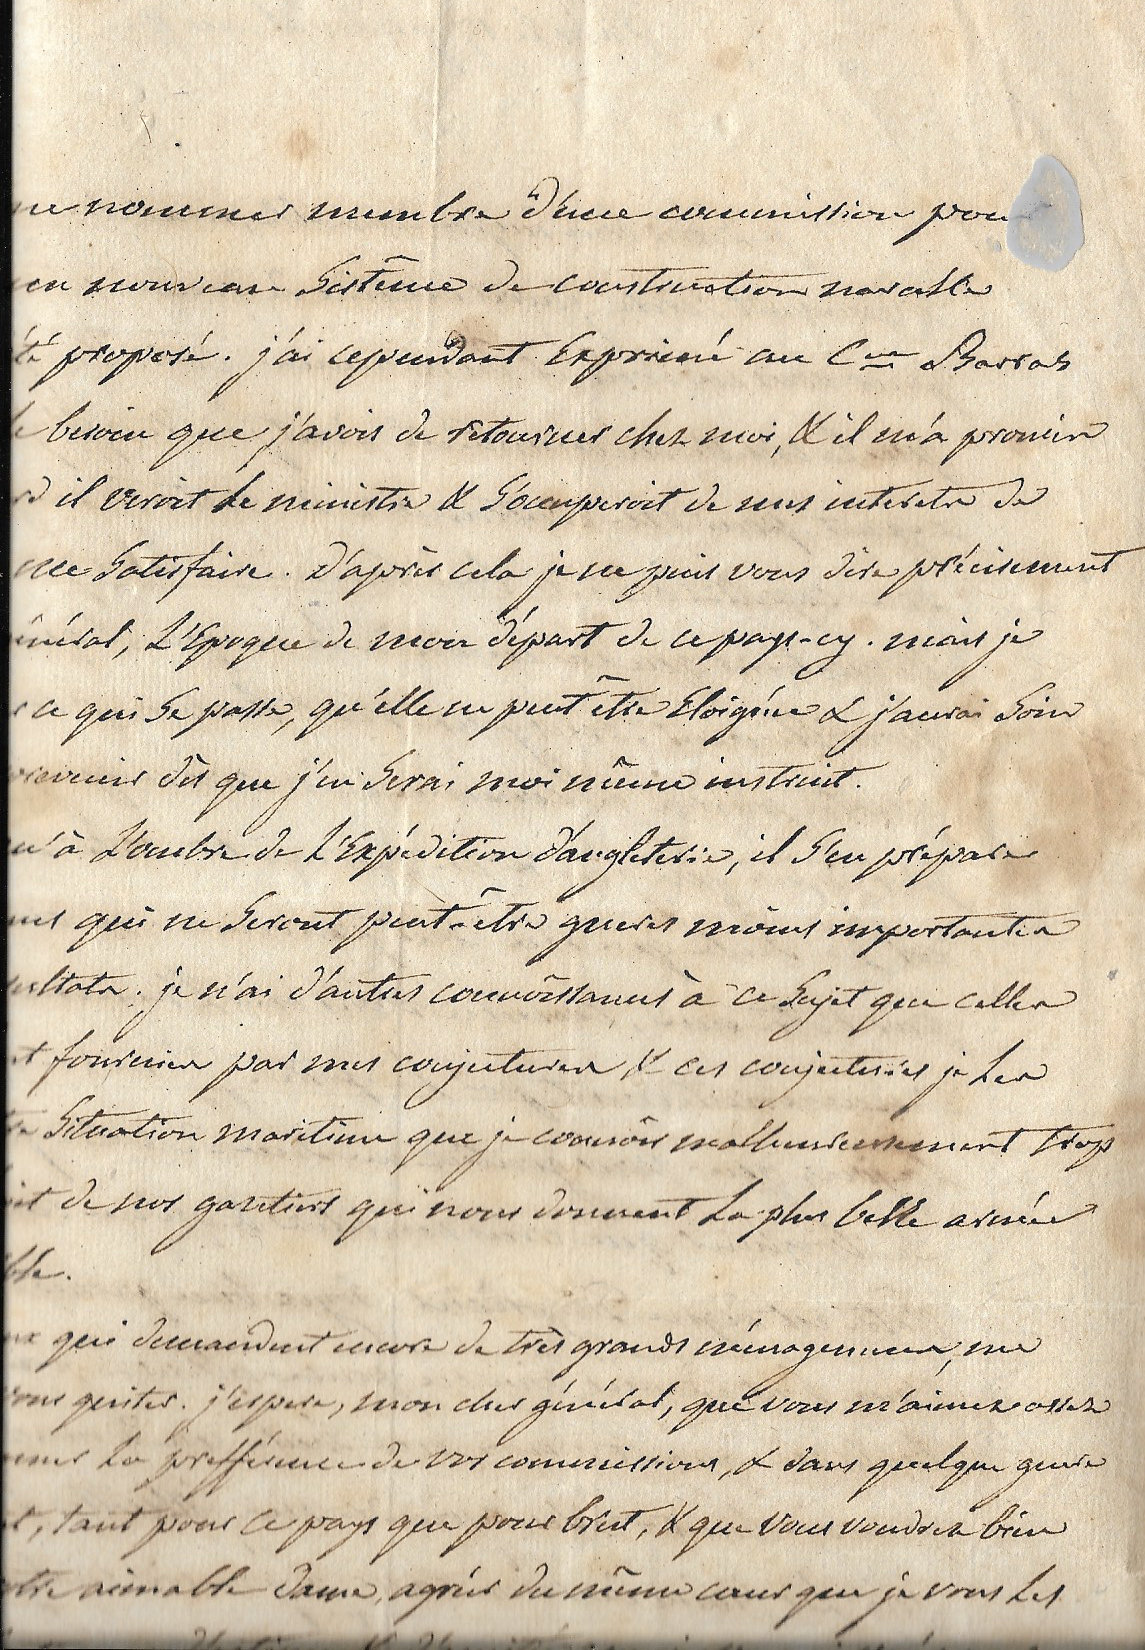 me nommer membre d'une commission pour
un nouveau Sistême de construction navalle
été proposé. j'ai cependant Exprimé au C.en Barras
le besoin que j'avois de retourner chez moi, & il m'a promis
il verroit le ministre & S'occuperoit de mes interets de
me Satisfaire. D'après cela je ne puis vous dire précisement
général, L'Epoque de mon départ de ce pays-cy. mais je
ce qui Se passe, qu'elle ne peut être Eloignée & j'aurai Soin
dès que j'en Serai moi même instruit.
qu'à L'ombre de L'Expédition d'angleterre, il S'en prépare
qui ne Seront peut-être gueres moins importantes
je n'ai d'autres connoissances à ce Sujet que celles
fournies par mes conjectures, & ces conjectures je Les
Situation maritime que je connois malheureusement trop
de nos gazetiers qui nous donnent La plus belle armée
qui demandent encore de très grands ménagemens, me
vous quitter. j'espere, mon cher général, que vous m'aimez assez
La prefférence de vos commissions, & dans quelque genre
tant pour ce pays que pour brest, & que Vous voudrez bien
aimable Dame, agréer du même coeur que je vous Les